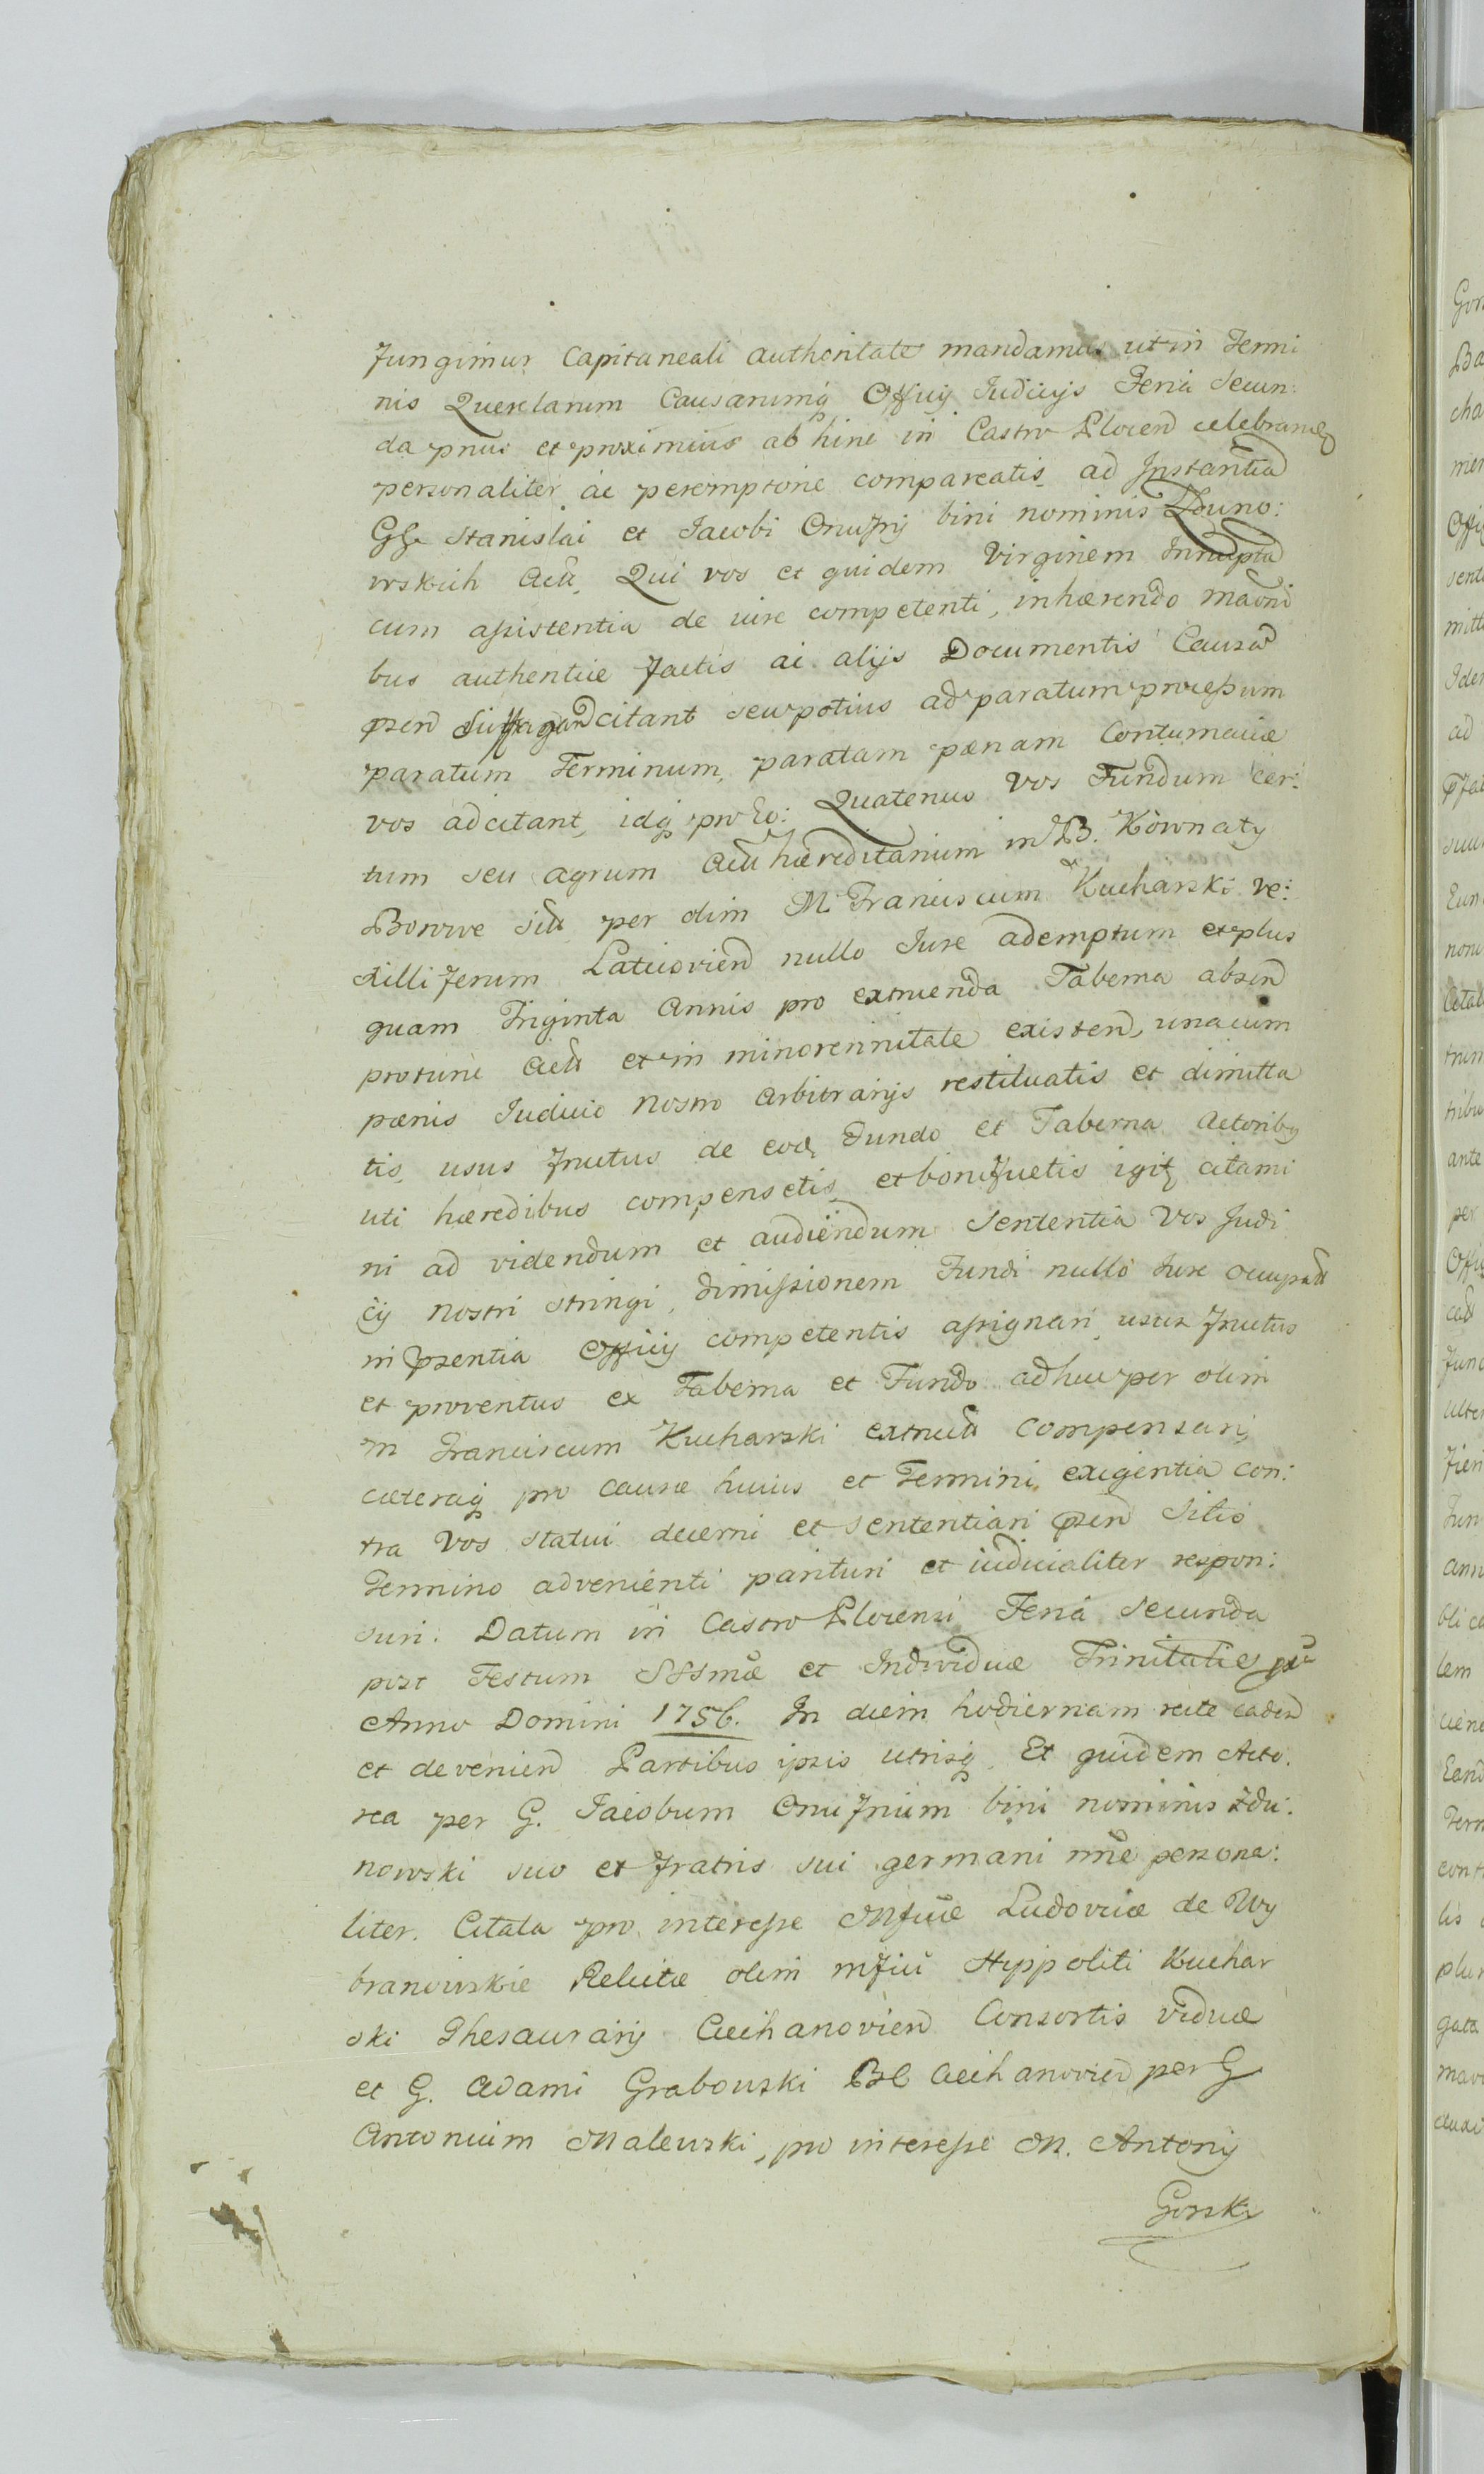 Jungimur Capitaneali authoritate mandamus ut in Termi
nis Querelarum Causarumq Officij Judicijs Feria Secun:
da pnus et proximius ab hinc in Castro Plocen celebran
personaliter ac peremptorie compareatis ad Instantia
GG Stanislai et Jacobi Onufrij bini nominis Zduno:
wskich Act. Qui vos et quidem Virginem Innupta
cum assistentia de iure competenti, inhærendo
bus authentice factis ac alijs Documentis Causa
pzen citant seu potius ad paratum processum
paratum Terminum, paratam pænam Contumaciæ
vos adcitant, idq pro Eo: Quatenus vos Fundum Cer:
tum seu agrum hæreditarium in B. Kownaty
Borowe per olim M Franciscum Kucharski ve:
xilliferum nullo Jure ademptum et plus
quam Triginta Annis pro extruenda Taberna absen
protunc et in minorennitate existen, unacum
pænis Judicio nostro arbitrarijs restituatis et dimitta
tis, usus fructus de eod Fundo et Taberna Actoriby
uti hæredibus compensetis et bonificetis igit citami
ni ad videndum et audiendum Sententia Vos Judi
cij nostri stringi, dimissionem Fundi nullo Jure occupati
in pzentia Officij competentis assignari usus fructus
et proventus ex Taberna et Fundo adhuc per olim
M Franciscum Kucharski extructa compensari,
cæteraq pro causæ huius et Termini exigentia con:
tra Vos statui decerni et sententiari pzen Sitis
Termino advenienti parituri et iudicialiter respon:
suri. Datum in Castro Plocensi Feria Secunda
post Festum SSsmæ et Individuæ Trinitatis
Anno Domini 1756. In diem hodiernam recte caden
et devenien Partibus ipsis utrisq. Et quidem Acto:
rea per G. Jacobum Onufrium bini nominis Zdu:
nowski suo et fratris sui germani nne persona:
liter. Citata pro interesse Mficæ Ludovicæ de Wy
branowskie Relictæ olim mfici Hyppoliti Kuchar
ski Thesaurarij Ciechanovien Consortis viduæ
et G. Adami Grabowski Ciechanovien per G
Antonium Malewski, pro interesse M. Antonij
Gorski